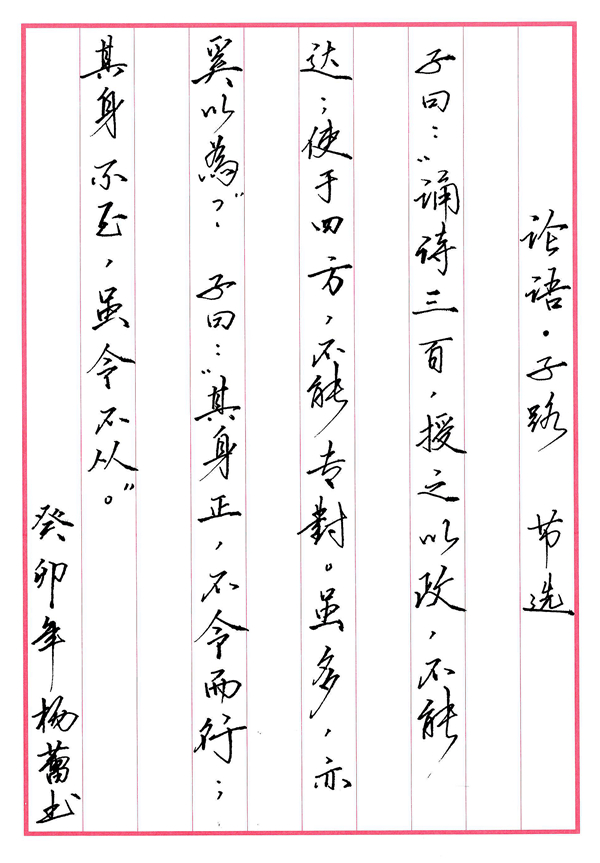 论语·子路 节选
子曰：“诵诗三百，授之以政，不能
达；使于四方，不能专對。虽多，亦
奚以為？” 子曰：“其身正，不令而行；
其身不正，虽令不从。”
癸卯年杨蕾书